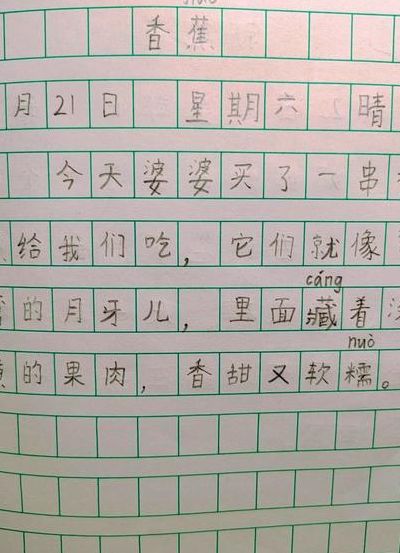 香蕉
月21日 星期六 晴
今天婆婆买了一串
给我们吃，它们就像
的月牙儿，里面藏着
cáng
的果肉，香甜又软糯。
nuò